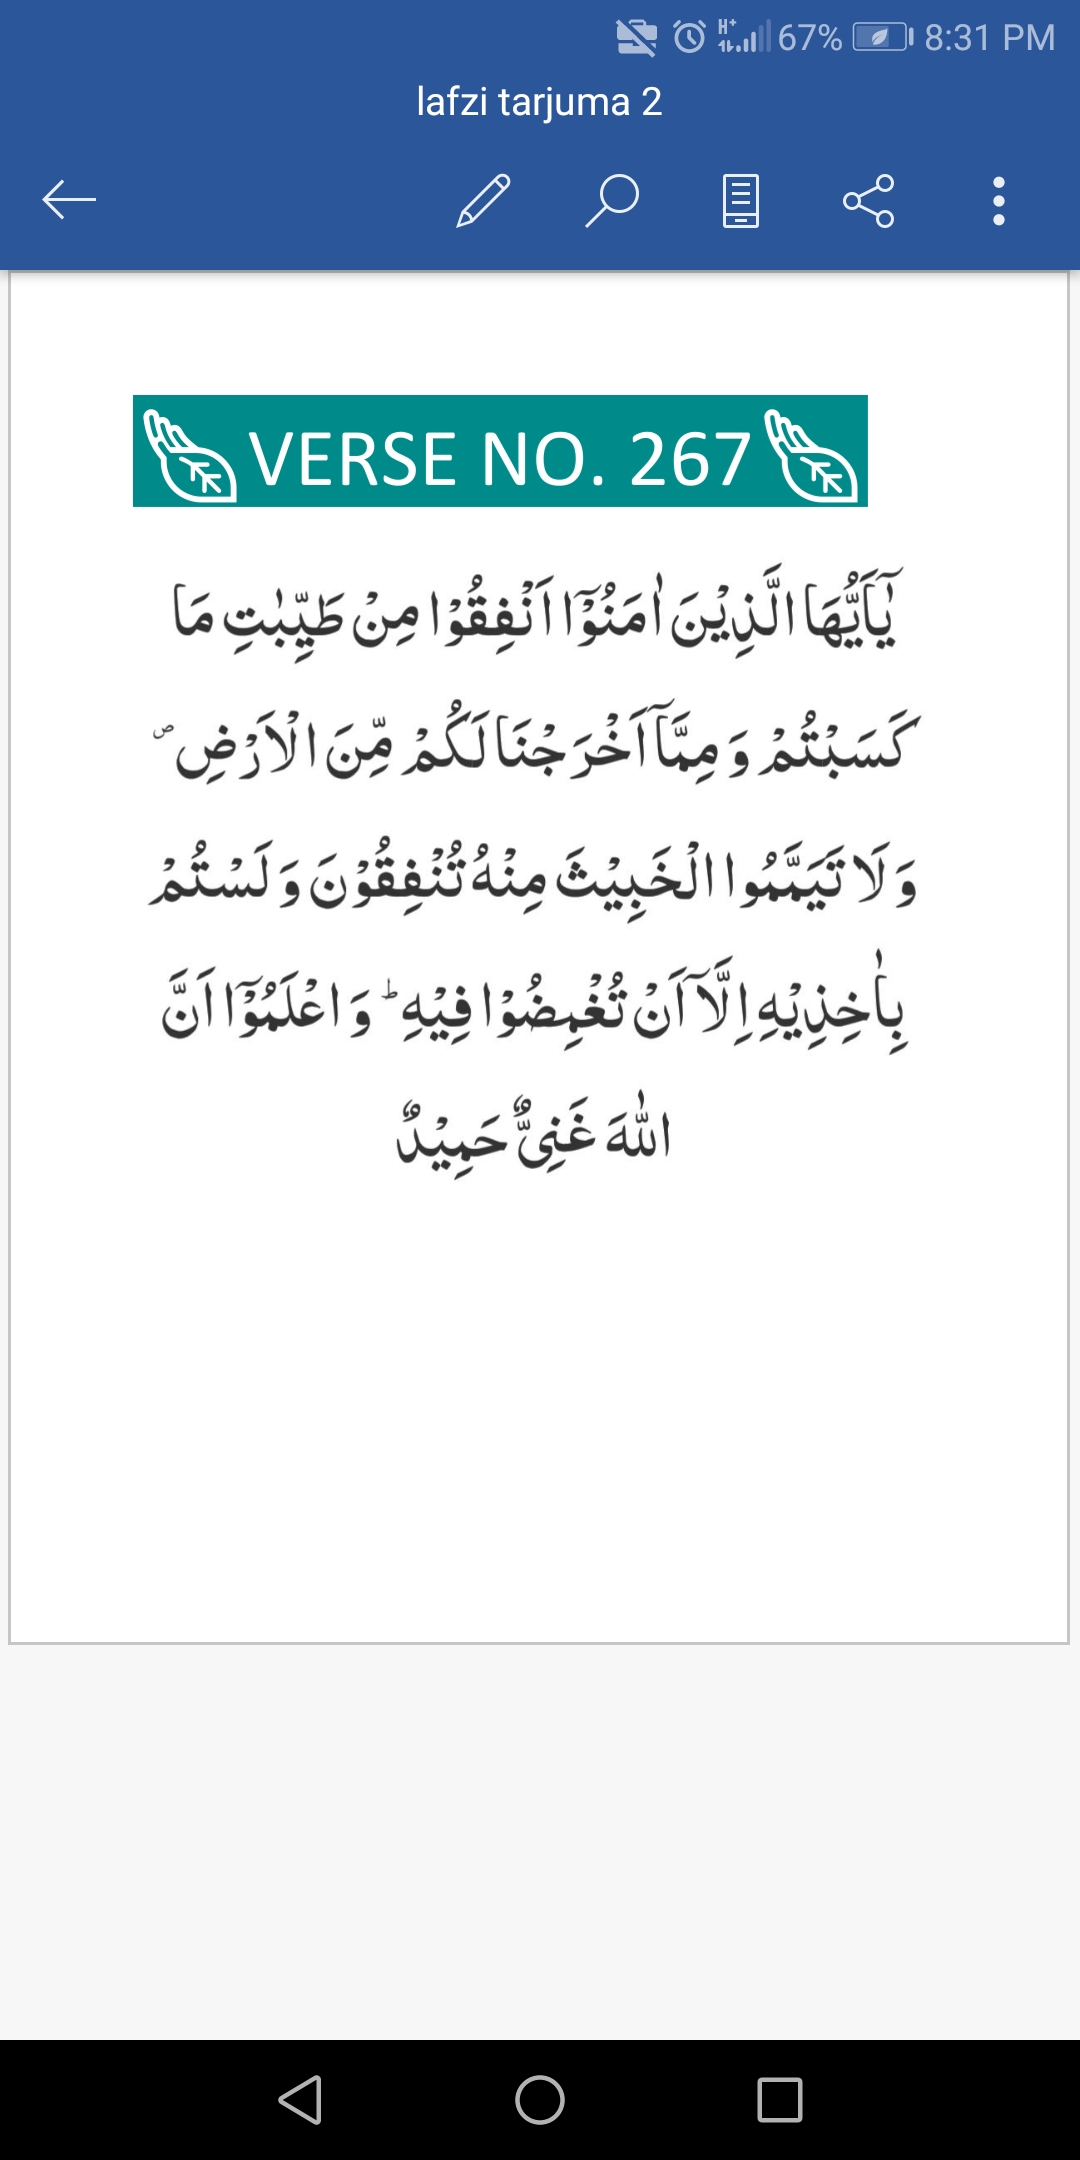 H+ 67% 8:31 PM
lafzi tarjuma 2
VERSE NO. 267
يٰۤاَيُّهَا الَّذِيْنَ اٰمَنُوْۤا اَنْفِقُوْا مِنْ طَيِّبٰتِ مَا
كَسَبْتُمْ وَ مِمَّاۤ اَخْرَجْنَا لَكُمْ مِّنَ الْاَرْضِ ۪
وَ لَا تَيَمَّمُوا الْخَبِيْثَ مِنْهُ تُنْفِقُوْنَ وَ لَسْتُمْ
بِاٰخِذِيْهِ اِلَّاۤ اَنْ تُغْمِضُوْا فِيْهِ ؕ وَ اعْلَمُوْۤا اَنَّ
اللّٰهَ غَنِيٌّ حَمِيْدٌ